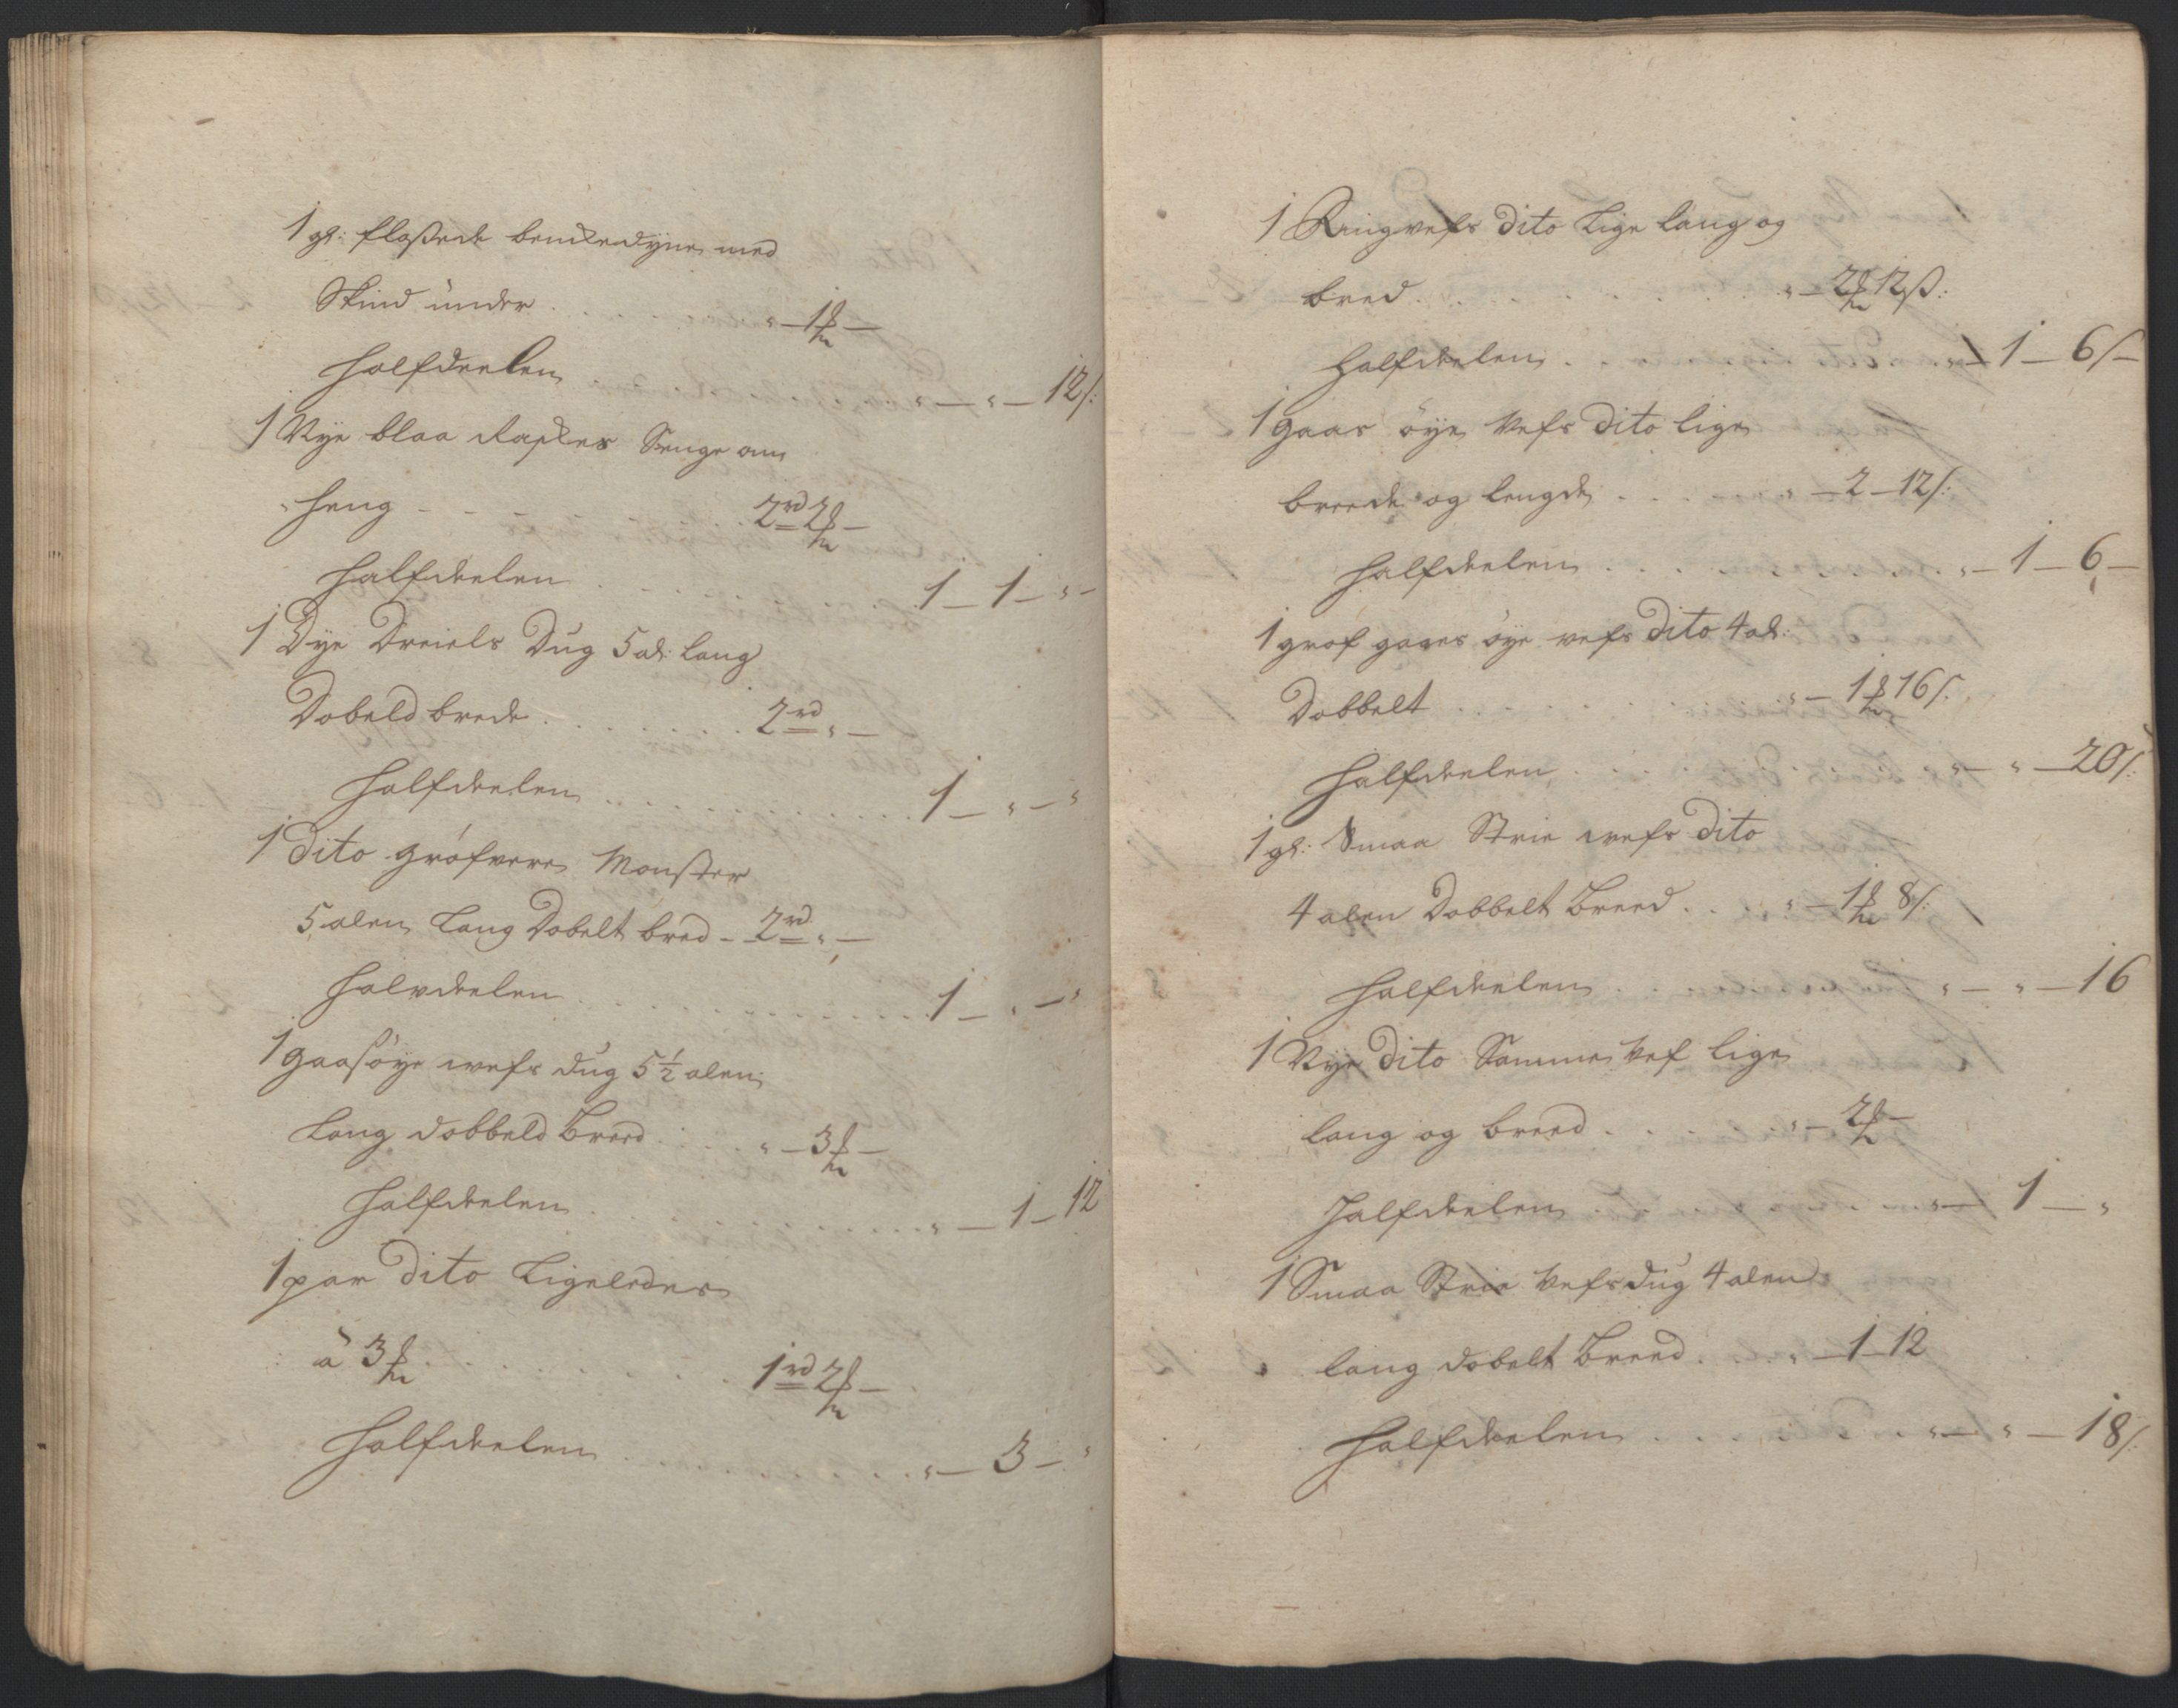 1 gl: flossede benckedyne med
Skind under . . . . . " — 1 ₻ —
Halfdeelen . . . . . " — " — 12 s:
1 Nye blaa Raskes Senge om
heng - - - - - 2 rd 2 ₻ —
Halfdeelen . . . . . 1 — 1 — " —
1 Dye Dreiels Dug 5 al: lang
Dobeld brede . . . . . 2 rd " —
Halfdeelen . . . . . 1 — " — "
1 Dito gröfvere Monster
5 alen Lang Dobelt bred - 2 rd " —
Halvdeelen . . . . . 1 — " — "
1 gaasöye wefs dug 5 ½ alen
Lang dobbeld Breed . . . " — 3 ₻ —
Halfdeelen . . . . . " — 1 — 12
1 par Dito Ligeledes
à 3 ₻ . . . . . 1 rd 2 ₻ —
Halfdeelen . . . . . " — 3 — "
1 Ringvefs Dito Lige lang og
bred . . . . . " — 2 ₻ 12 ß:
Halfdeelen . . . . . " — 1 — 6 s —
1 gaas öye Vefs Dito lige
breede og lengde . . . . " — 2 — 12 s:
Halfdeelen . . . . . " — 1 — 6 —
1 grof gaases öye vefs Dito 4 al:
Dobbelt . . . . . " — 1 ₻ 16 s.
Halfdeelen . . . . . " — " — 20 s:
1 gl: Smaa Strie wefs Dito
4 alen Dobbelt Breed . . . " — 1 ₻ 8 s:
Halfdeelen . . . . . " — " — 16
1 Nye Dito Samme Vef lige
lang og breed . . . . . " — 2 ₻ —
Halfdeelen . . . . . " — 1 — "
1 Smaa Strie Vefs dug 4 alen
lang dobelt Breed . . . . " — 1 — 12
Halfdeelen . . . . . " — " — 18 s: